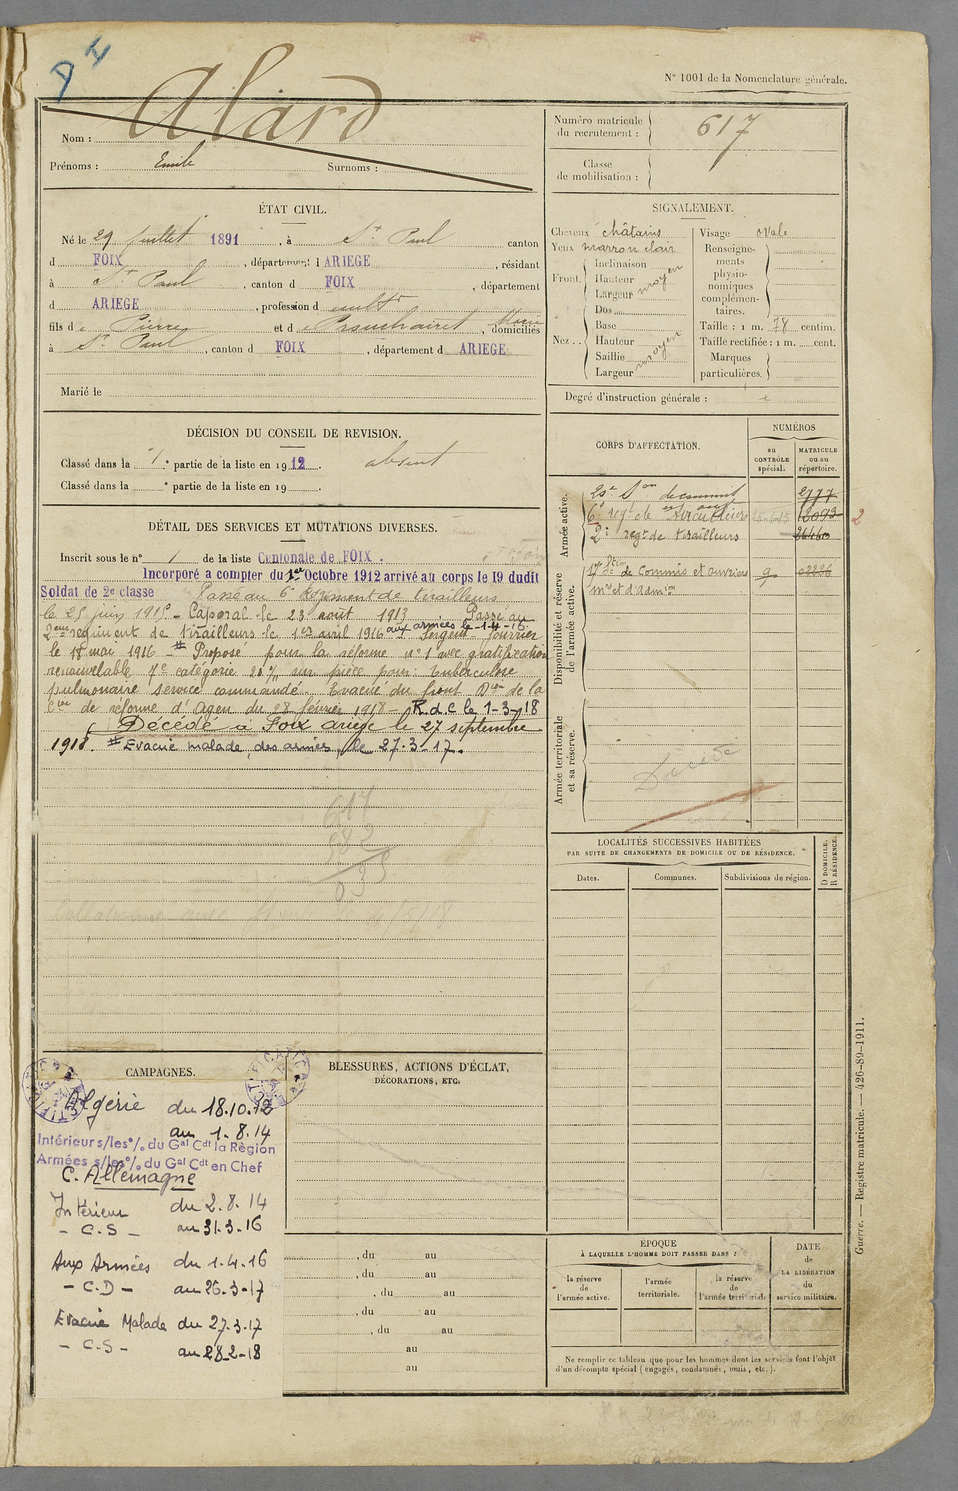 N° 1001 de la Nomenclature générale.
Alard
Nom :
Prénoms : Emile Surnoms :
Numéro matricule du recrutement : 617
Classe de mobilisation :
ÉTAT CIVIL.
Né le 29 juillet 1891, à St Paul canton
d FOIX, département d ARIEGE, résidant
à St Paul, canton d FOIX, département
d ARIEGE, profession d cultr
fils de Pierre et de Marie, domiciliés
à St Paul, canton d FOIX, département d ARIEGE
Marié le
SIGNALEMENT.
Cheveux châtains
Yeux marron clair
Front. Inclinaison
Hauteur moyen
Largeur
Nez . . Dos
Base
Hauteur moyen
Saillie
Largeur
Visage ovale
Renseignements physionomiques complémentaires.
Taille : 1 m. 78 centim.
Taille rectifiée : 1 m. cent.
Marques particulières.
Degré d'instruction générale :
DÉCISION DU CONSEIL DE REVISION.
Classé dans la 1e partie de la liste en 1912. absent
Classé dans la e partie de la liste en 19 .
DÉTAIL DES SERVICES ET MUTATIONS DIVERSES.
Inscrit sous le n° 1 de la liste Cantonale de FOIX.
Incorporé à compter du 1er Octobre 1912 arrivé au corps le 19 dudit
Soldat de 2e classe Passé au 6e Régiment de tirailleurs
le 25 juin 1915 - Caporal le 23 août 1913. Passé au
2eme régiment de tirailleurs le 1er avril 1916 aux armées le 1-4-16. Sergent fourrier
le 18 mai 1916 # Proposé pour la réforme n° 1 avec gratification
renouvelable 7e catégorie 20% sur pièce pour : tuberculose
pulmonaire service commandé. Evacué du front Don de la
Con de réforme d'Agen du 28 février 1918 R.d.C le 1-3-18
Décédé à Foix ariège le 27 septembre
1918. # Evacué malade, des armées, le 27-3-17.
617
CORPS D'AFFECTATION.
NUMÉROS
au CONTRÔLE spécial.
MATRICULE ou au répertoire.
Armée active.
2777
6e regt de tirailleurs 12093 2
2e regt de tirailleurs
Disponibilité et réserve de l'armée active.
17e Son de Commis et ouvriers 9
mres et d'admon
Armée territoriale et sa réserve.
Décédé
LOCALITÉS SUCCESSIVES HABITÉES
PAR SUITE DE CHANGEMENTS DE DOMICILE OU DE RÉSIDENCE.
Dates. Communes. Subdivisions de région.
D DOMICILE.
R RÉSIDENCE.
CAMPAGNES.
Algérie du 18.10.12
au 1.8.14
Intérieur s/les % du Gal Cdt la Région
Armées s/les % du Gal Cdt en Chef
C. Allemagne
Intérieur du 2.8.14
- C.S - au 31.3.16
Aux Armées du 1.4.16
- C.D - au 26.3-17
Evacué Malade du 27.3.17
- C.S - au 28-2-18
BLESSURES, ACTIONS D'ÉCLAT,
DÉCORATIONS, ETC.
, du au
, du au
, du au
, du au
, du au
au
au
ÉPOQUE
À LAQUELLE L'HOMME DOIT PASSER DANS :
la réserve de l'armée active.
l'armée territoriale.
la réserve de l'armée territoriale
DATE
DE LA LIBÉRATION
du service militaire.
Ne remplir ce tableau que pour les hommes dont les services font l'objet
d'un décompte spécial (engagés, condamnés, omis, etc.).
Guerre. — Registre matricule. — 426-89-1911.